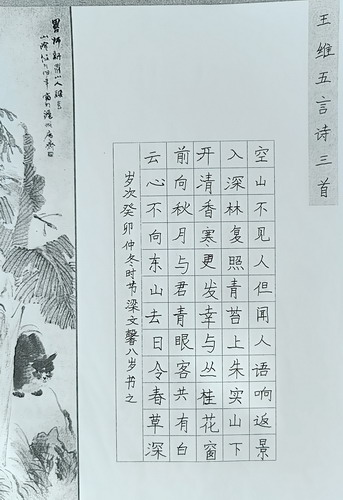 王维五言诗三首
空山不见人但闻人语响返景
入深林复照青苔上朱实山下
开清香寒更发幸与丛桂花窗
前向秋月与君青眼客共有白
云心不向东山去日令春草深
岁次癸卯仲冬时节梁文馨八岁书之